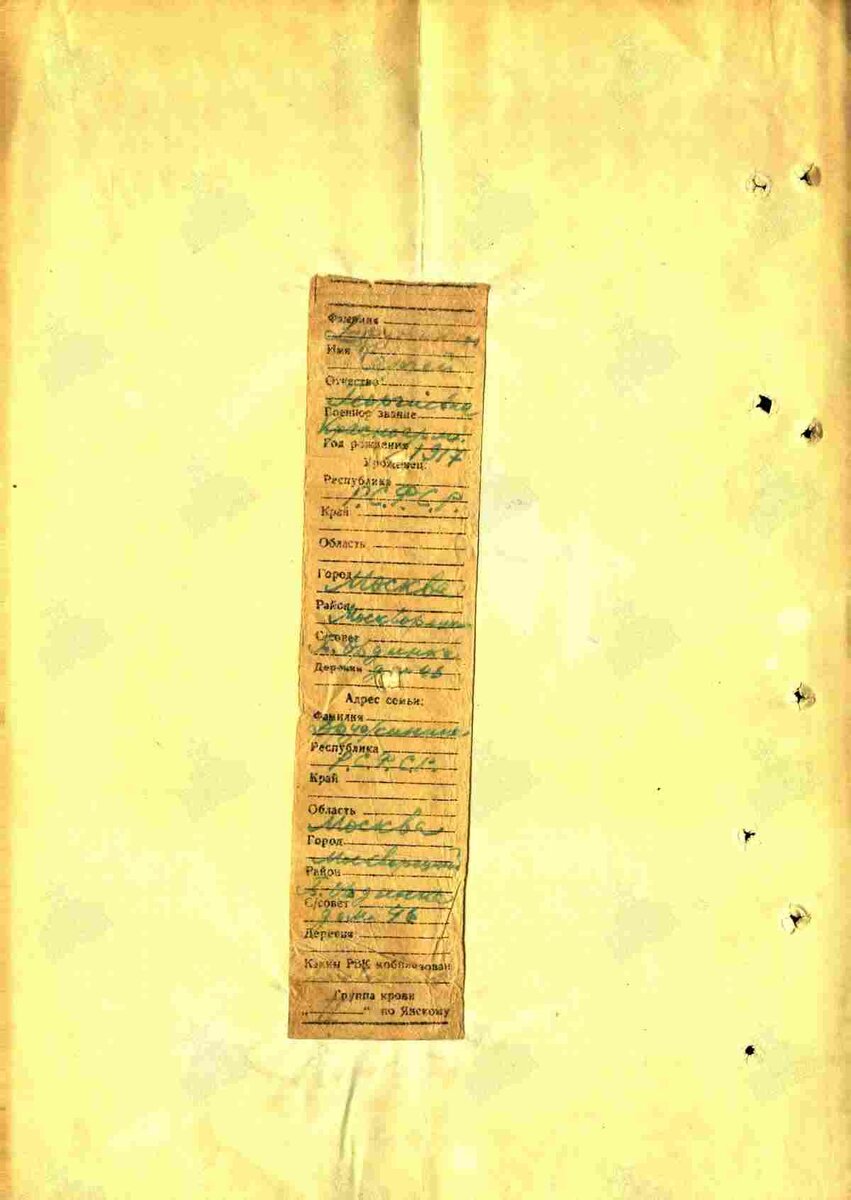 Фамилия
Имя
Сергей
Отчество
Военное звание
Красноарм.
Год рождения 1917
Уроженец:
Республика
Р.С.Ф.С.Р.
Край
Область
Город
Москва
Район
С/совет
Б. Ордынка
Деревня д. 46
Адрес семьи:
Фамилия
Республика
Р.С.Ф.С.Р.
Край
Область
Москва
Город
Район
Б. Ордынка
С/совет
дом 46
Деревня
Каким РВК мобилизован
Группа крови
„ “ по Янскому